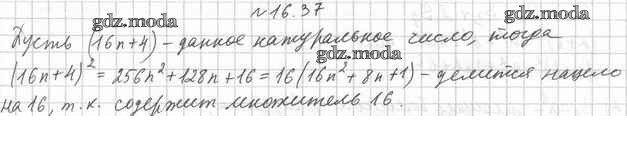 №16.37
gdz.moda
gdz.moda
Пусть (16n+4) - данное натуральное число, тогда
gdz.moda
(16n+4)² = 256n² + 128n + 16 = 16(16n² + 8n + 1) - делится нацело
на 16, т.к. содержит множитель 16.